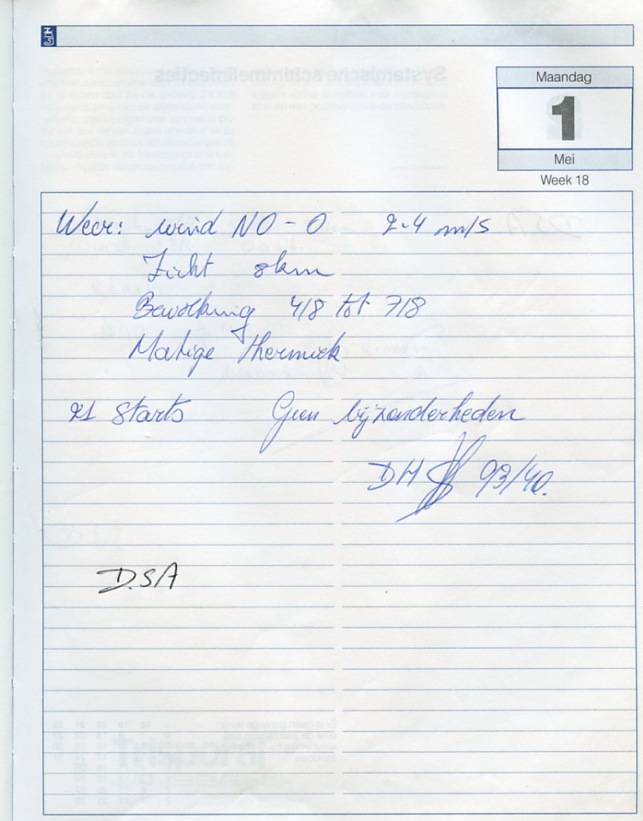 Maandag
1
Mei
Week 18
Weer: wind NO-O 2-4 m/s
Zicht 8km
Bewolking 4/8 tot 7/8
Matige thermiek
21 starts Geen bijzonderheden
DH 93/40.
D.S.A